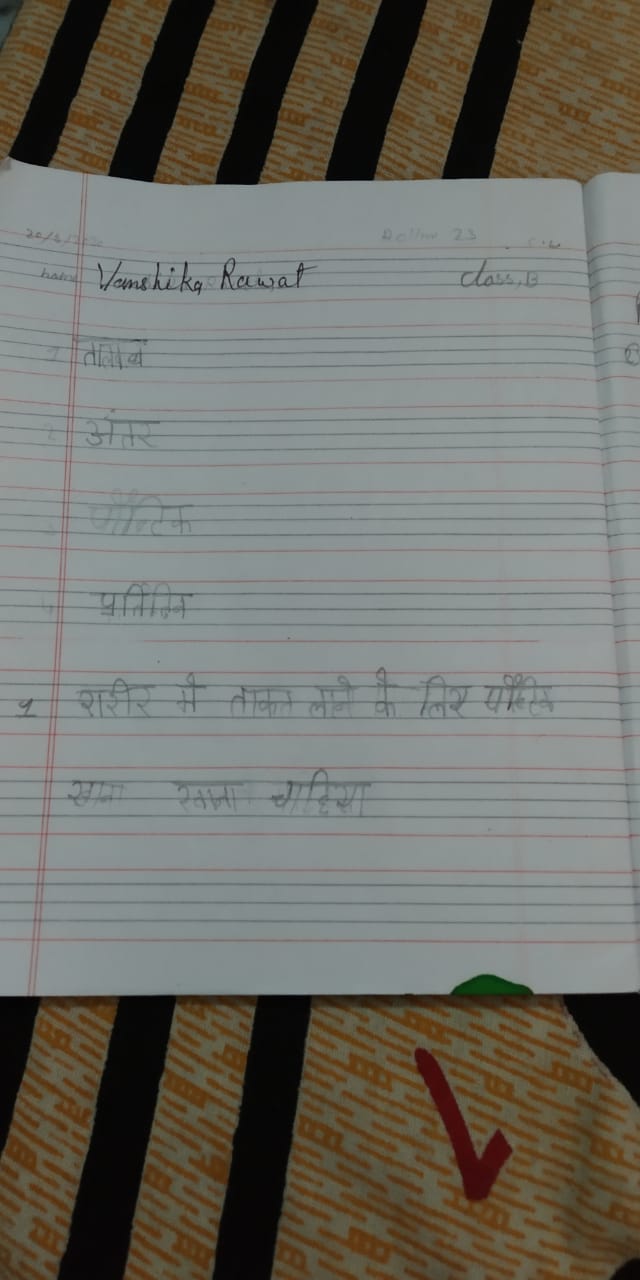 Rollno 23
name Vanshika Rawat class, B
1 तालाब
2 अंतर
3 पौष्टिक
4 प्रतिदिन
1 शरीर में ताकत लाने के लिए पौष्टिक
खाना खाना चाहिए